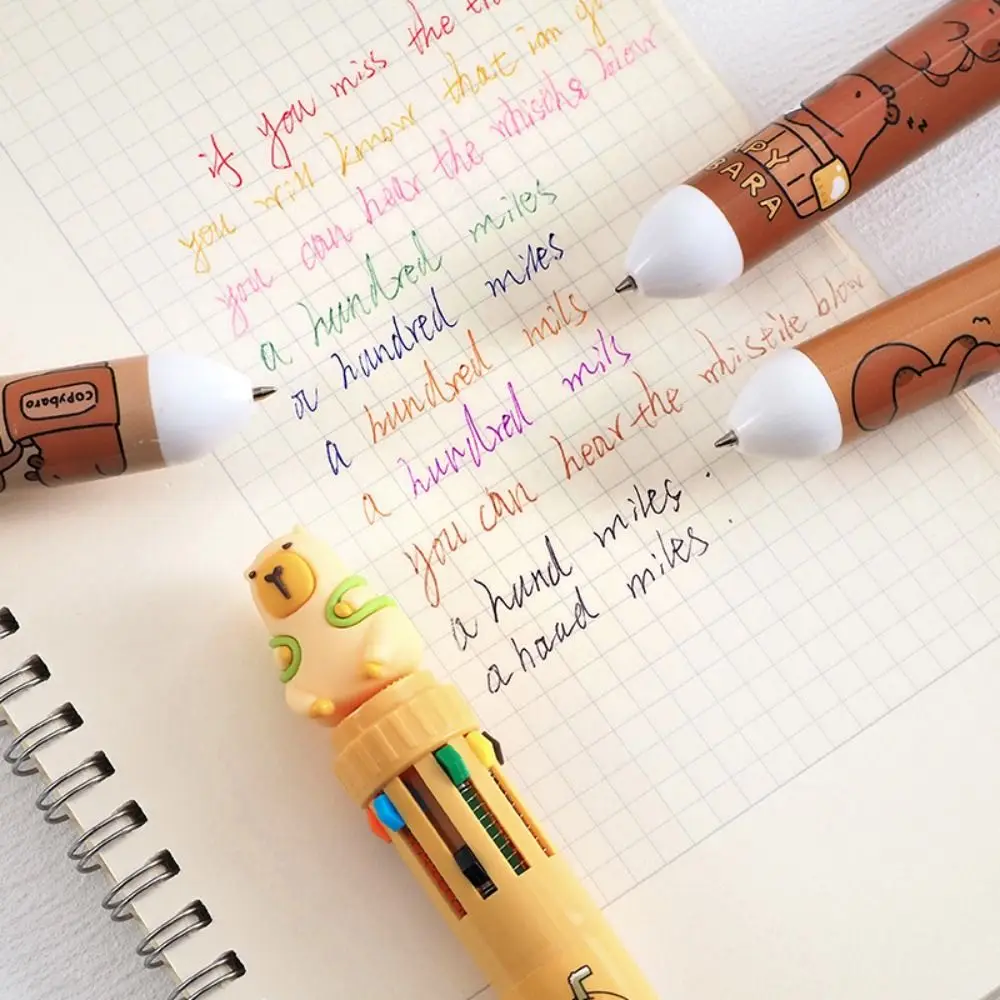 if you miss the
you will know that iam
you can hear the whistle blow
a hundred miles
a hundred miles
a hundred mils
a hundred mils
you can hear the whiseile blow
a hund miles.
a haud miles.
PY
BARA
copybaro